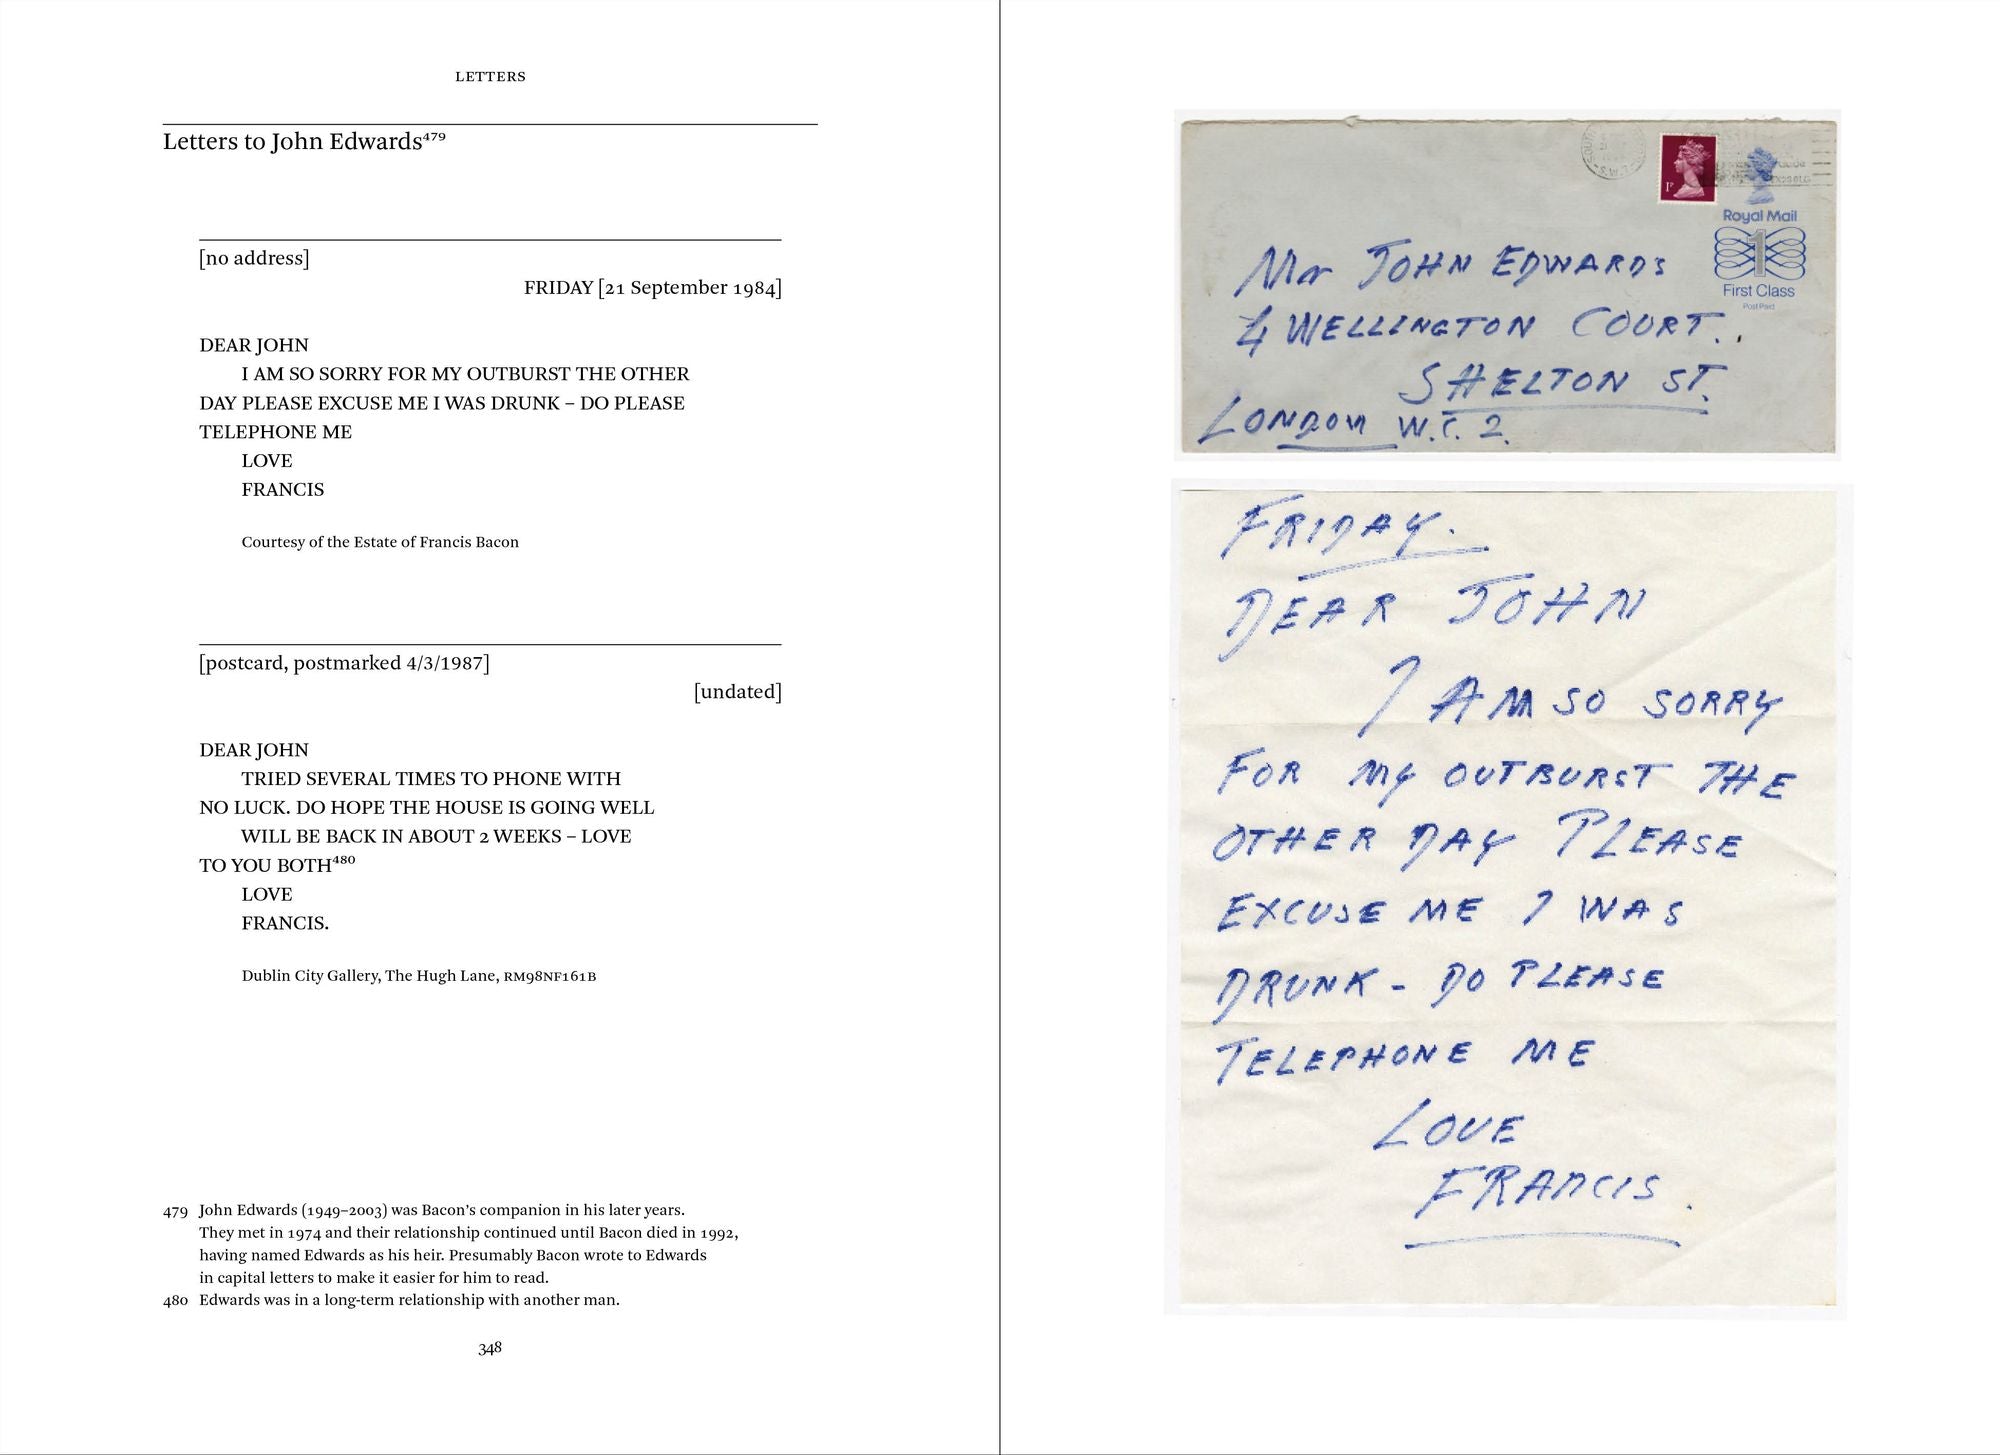 LETTERS
Letters to John Edwards⁴⁷⁹
[no address]
FRIDAY [21 September 1984]
DEAR JOHN
I AM SO SORRY FOR MY OUTBURST THE OTHER
DAY PLEASE EXCUSE ME I WAS DRUNK – DO PLEASE
TELEPHONE ME
LOVE
FRANCIS
Courtesy of the Estate of Francis Bacon
[postcard, postmarked 4/3/1987]
[undated]
DEAR JOHN
TRIED SEVERAL TIMES TO PHONE WITH
NO LUCK. DO HOPE THE HOUSE IS GOING WELL
WILL BE BACK IN ABOUT 2 WEEKS – LOVE
TO YOU BOTH⁴⁸⁰
LOVE
FRANCIS.
Dublin City Gallery, The Hugh Lane, RM98NF161B
479 John Edwards (1949–2003) was Bacon's companion in his later years.
They met in 1974 and their relationship continued until Bacon died in 1992,
having named Edwards as his heir. Presumably Bacon wrote to Edwards
in capital letters to make it easier for him to read.
480 Edwards was in a long-term relationship with another man.
348
1P
Royal Mail
1
First Class
Post Paid
Mr JOHN EDWARDS
4 WELLINGTON COURT.
SHELTON ST.
LONDON W.C. 2.
FRIDAY.
DEAR JOHN
I AM SO SORRY
FOR MY OUTBURST THE
OTHER DAY PLEASE
EXCUSE ME I WAS
DRUNK - DO PLEASE
TELEPHONE ME
LOVE
FRANCIS.